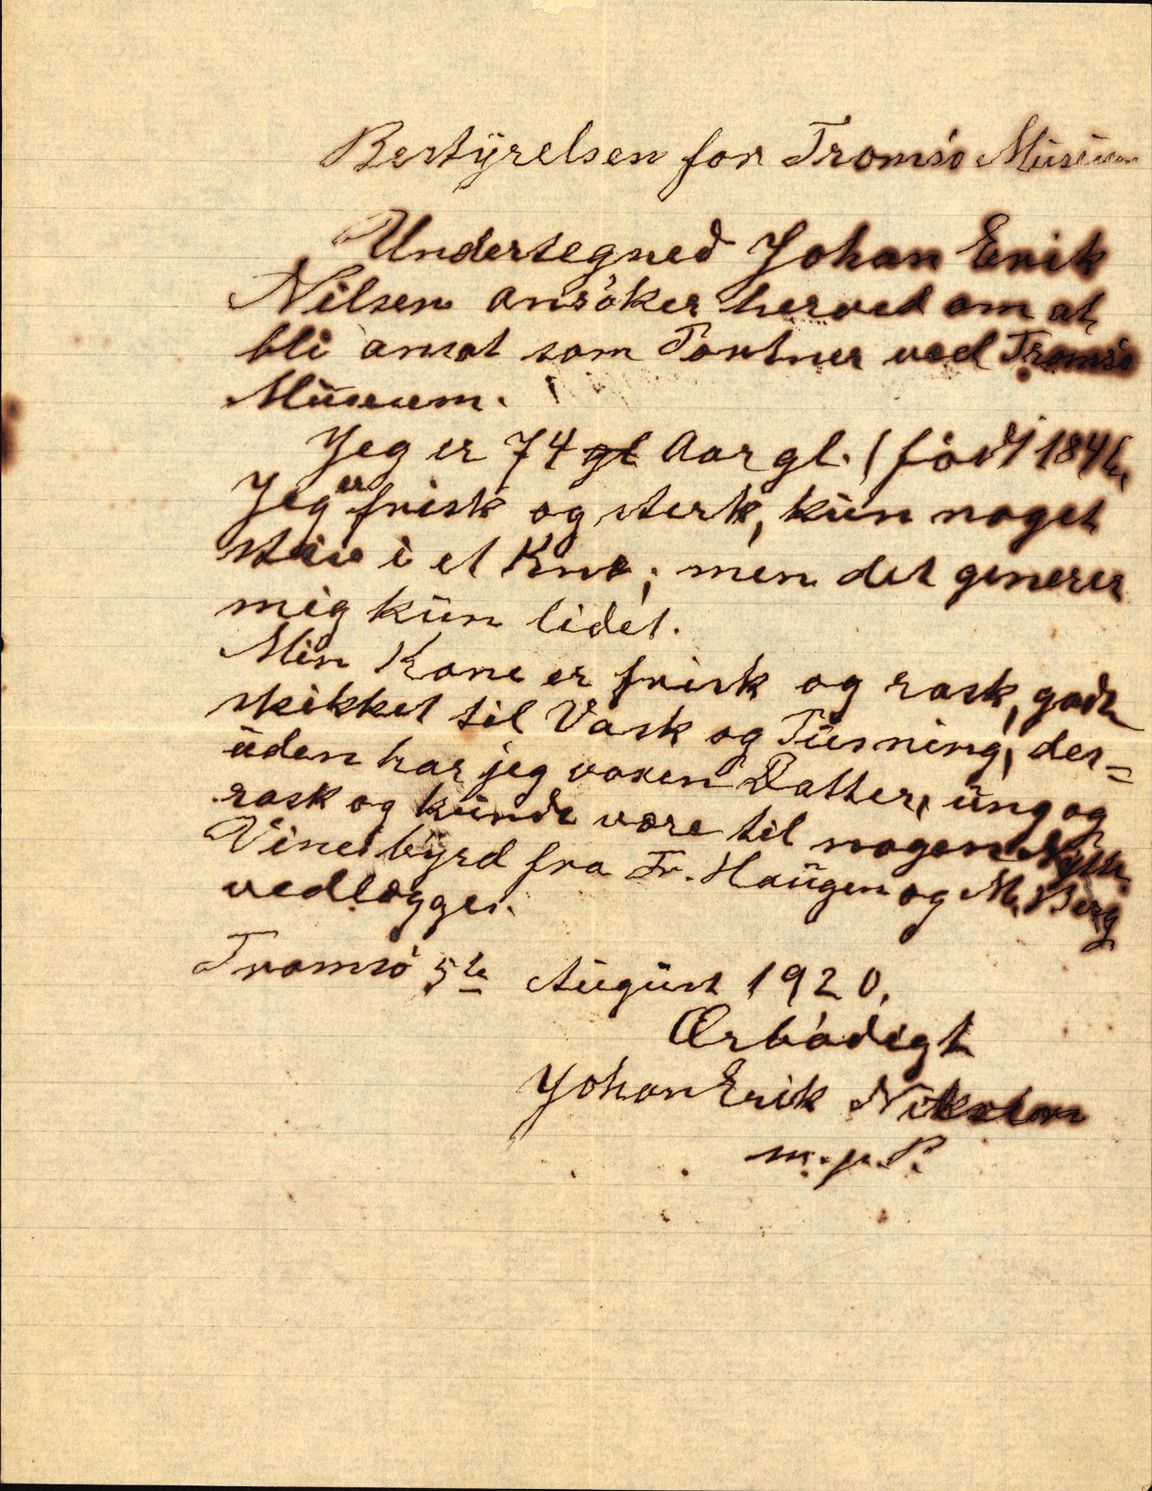 Bestÿrelsen for Tromsö Müsüum
Undertegned Johan Erik
Nilsen ansöker herved om at
bli ansat som Portner ved Tromsö
Müseum.
Jeg er 74 gl Aar gl. (född 1846,
Jeg er frisk og sterk, kün noget
stiv i et Kne; men det generer
mig kün lidet.
Min Kone er frisk og rask, godt
skikket til Vask og Püsning, des=
üden har jeg voxen Datter, üng og
rask og künde være til nogen Nytte.
Vinesbyrd fra Fr. Haügen og M. Berg
vedlægges.
Tromsö 5te Aügüst 1920.
Ærbödigt
Johan Erik
m. p. P.